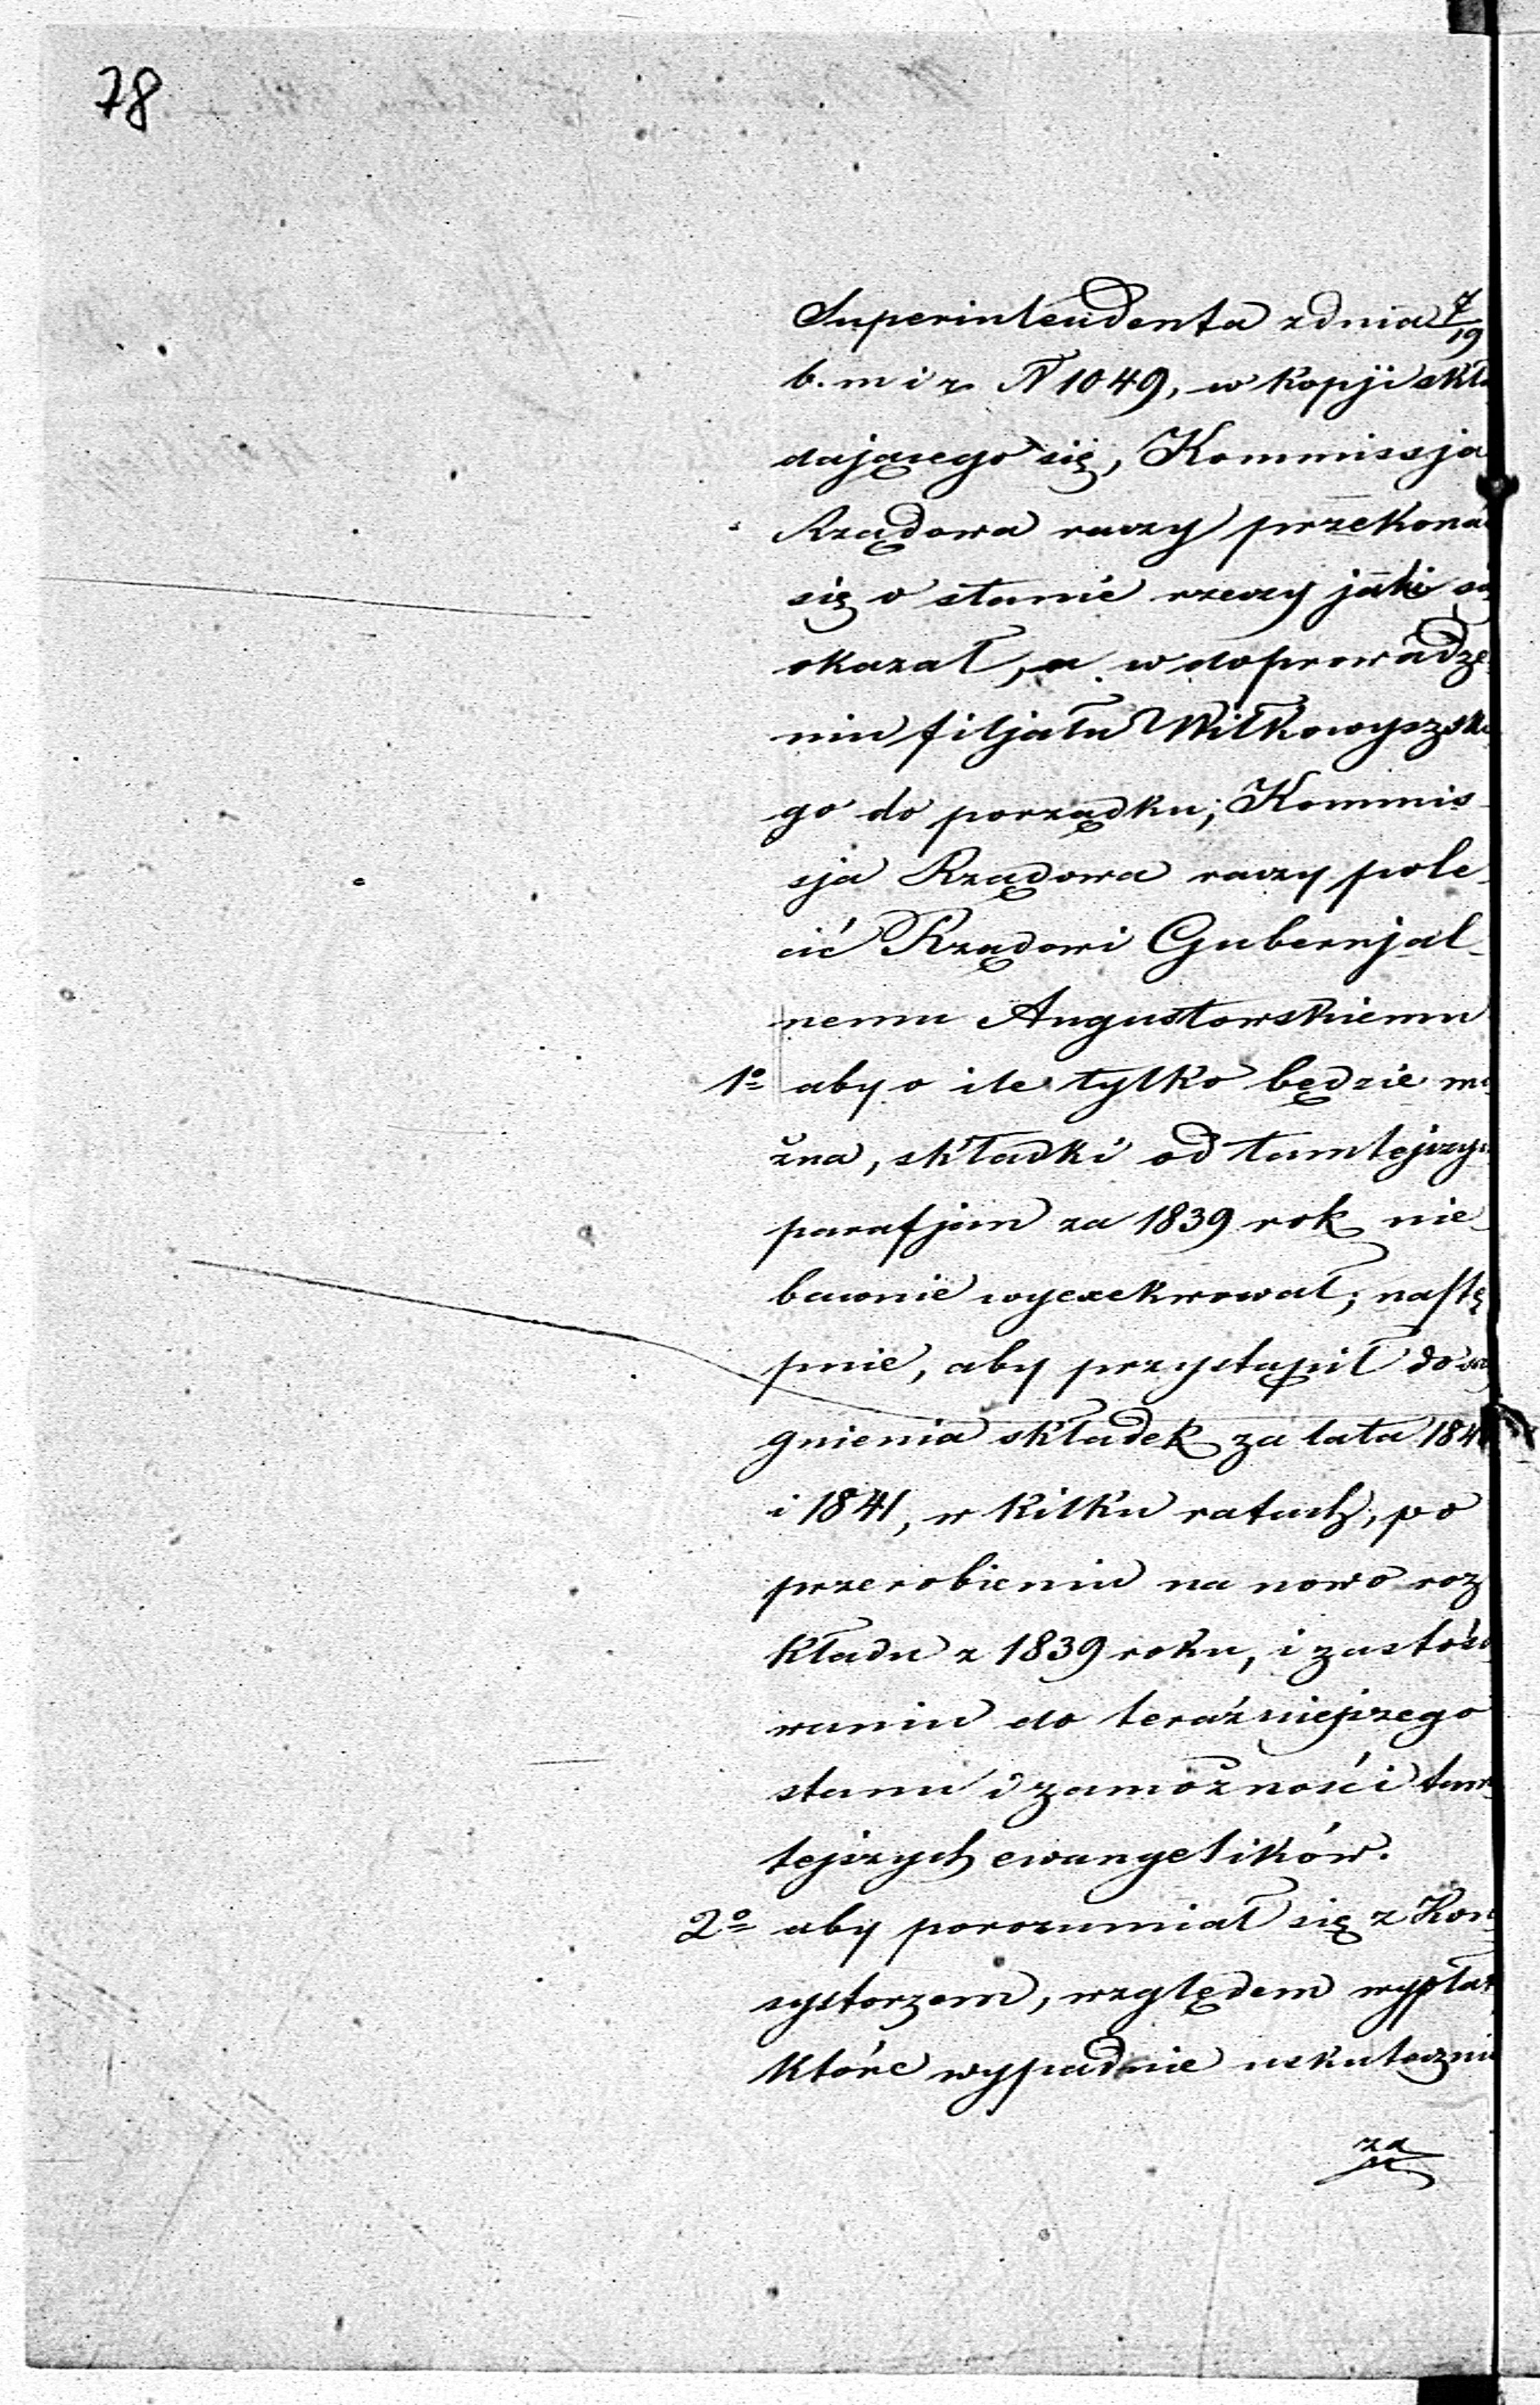 78
Superintendenta z dnia 7/19
b. m i r. N 1049, w kopji skła
dającego się, Kommissja
Rządowa raczy przekonać
się o stanie rzeczy jaki się
okazał, a w doprowadze
niu filjału Wiłkowyszskie
go do porządku; Kommis
sja Rządowa raczy pole
cić Rządowi Gubernjal
nemu Augustowskiemu
1º aby o ile tylko będzie mo
żna, składki od tamtejszych
parafjan za 1839 rok nie
bawnie wyexekwował; nastę
pnie, aby przystąpił do ścią
gnienia składek za lata 1840
i 1841, w kilku ratach, po
przerobieniu na nowo roz
kładu z 1839 roku, i zastóso
waniu do teraźniejszego
stanu i zamożności tam
tejszych ewangelików.
2º aby porozumiał się z Kon
systorzem, względem wypłat
które wypadnie uskutecznić
za